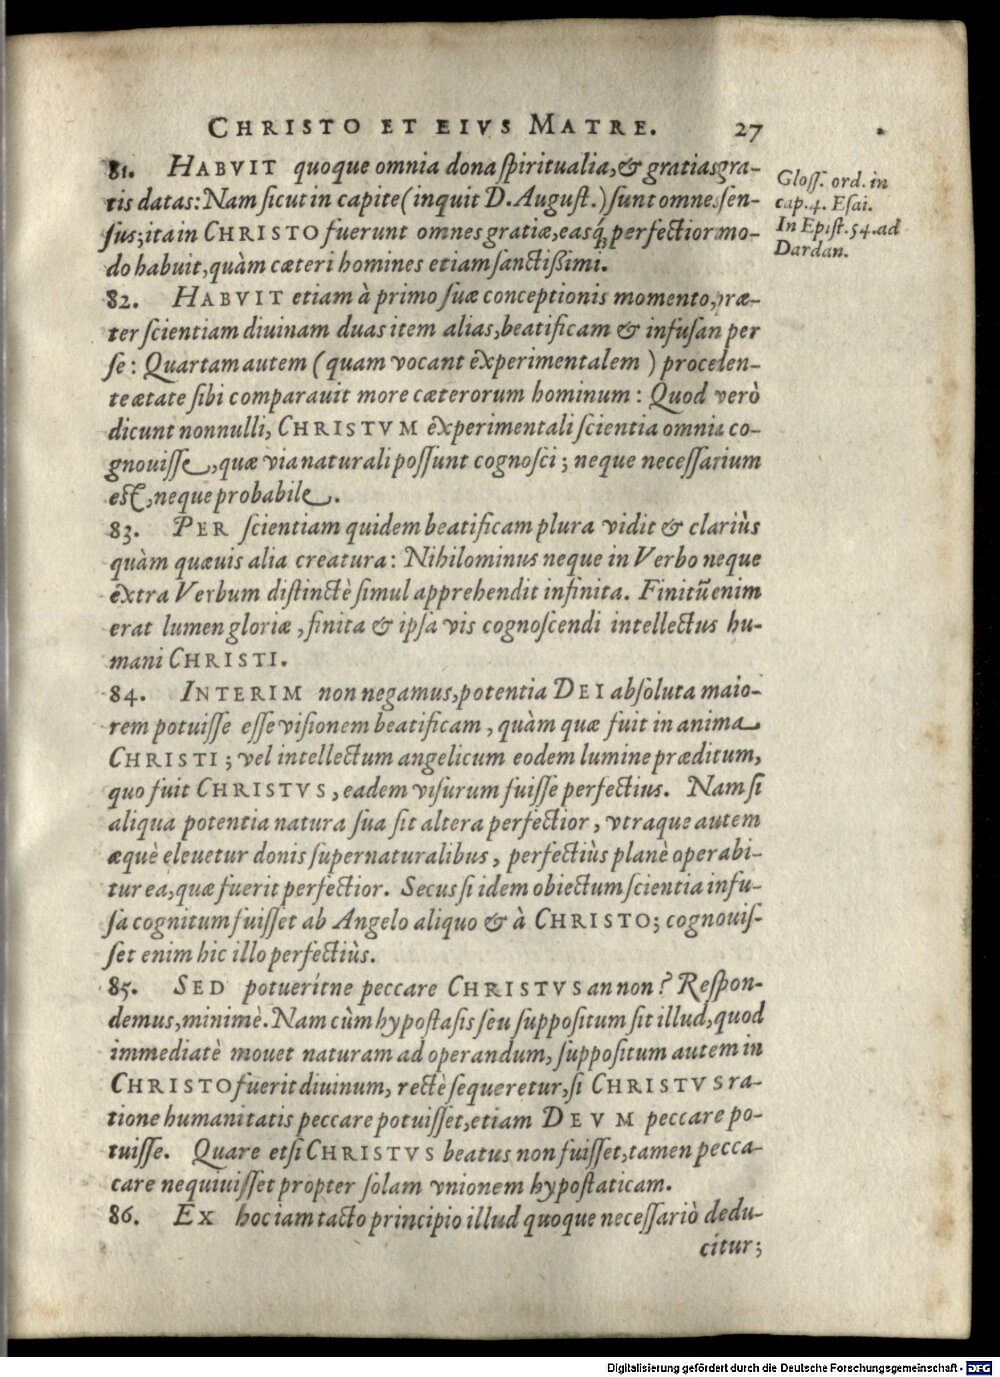 CHRISTO ET EIVS MATRE. 27
81. HABVIT quoque omnia dona spiritualia, & gratias gra-
tis datas: Nam sicut in capite (inquit D. August.) sunt omnes sen-
sus; ita in CHRISTO fuerunt omnes gratiæ, easq́; perfectiori mo-
do habuit, quàm cæteri homines etiam sanctißimi.
Gloss. ord. in
cap. 4. Esai.
In Epist. 54. ad
Dardan.
82. HABVIT etiam à primo suæ conceptionis momento, præ-
ter scientiam diuinam duas item alias, beatificam & infusam per
se: Quartam autem (quam vocant experimentalem) proceden-
te ætate sibi comparauit more cæterorum hominum: Quod verò
dicunt nonnulli, CHRISTVM experimentali scientia omnia co-
gnouisse, quæ via naturali possunt cognosci; neque necessarium
est, neque probabile.
83. PER scientiam quidem beatificam plura vidit & clariùs
quàm quæuis alia creatura: Nihilominus neque in Verbo neque
extra Verbum distinctè simul apprehendit infinita. Finitũ enim
erat lumen gloriæ, finita & ipsa vis cognoscendi intellectus hu-
mani CHRISTI.
84. INTERIM non negamus, potentia DEI absoluta maio-
rem potuisse esse visionem beatificam, quàm quæ fuit in anima
CHRISTI; vel intellectum angelicum eodem lumine præditum,
quo fuit CHRISTVS, eadem visurum fuisse perfectius. Nam si
aliqua potentia natura sua sit altera perfectior, vtraque autem
æquè eleuetur donis supernaturalibus, perfectiùs planè operabi-
tur ea, quæ fuerit perfectior. Secus si idem obiectum scientia infu-
sa cognitum fuisset ab Angelo aliquo & à CHRISTO; cognouis-
set enim hic illo perfectiùs.
85. SED potueritne peccare CHRISTVS an non? Respon-
demus, minimè. Nam cùm hypostasis seu suppositum sit illud, quod
immediatè mouet naturam ad operandum, suppositum autem in
CHRISTO fuerit diuinum, rectè sequeretur, si CHRISTVS ra-
tione humanitatis peccare potuisset, etiam DEVM peccare po-
tuisse. Quare etsi CHRISTVS beatus non fuisset, tamen pecca-
care nequiuisset propter solam vnionem hypostaticam.
86. EX hoc iam tacto principio illud quoque necessariò dedu-
citur;
Digitalisierung gefördert durch die Deutsche Forschungsgemeinschaft - DFG